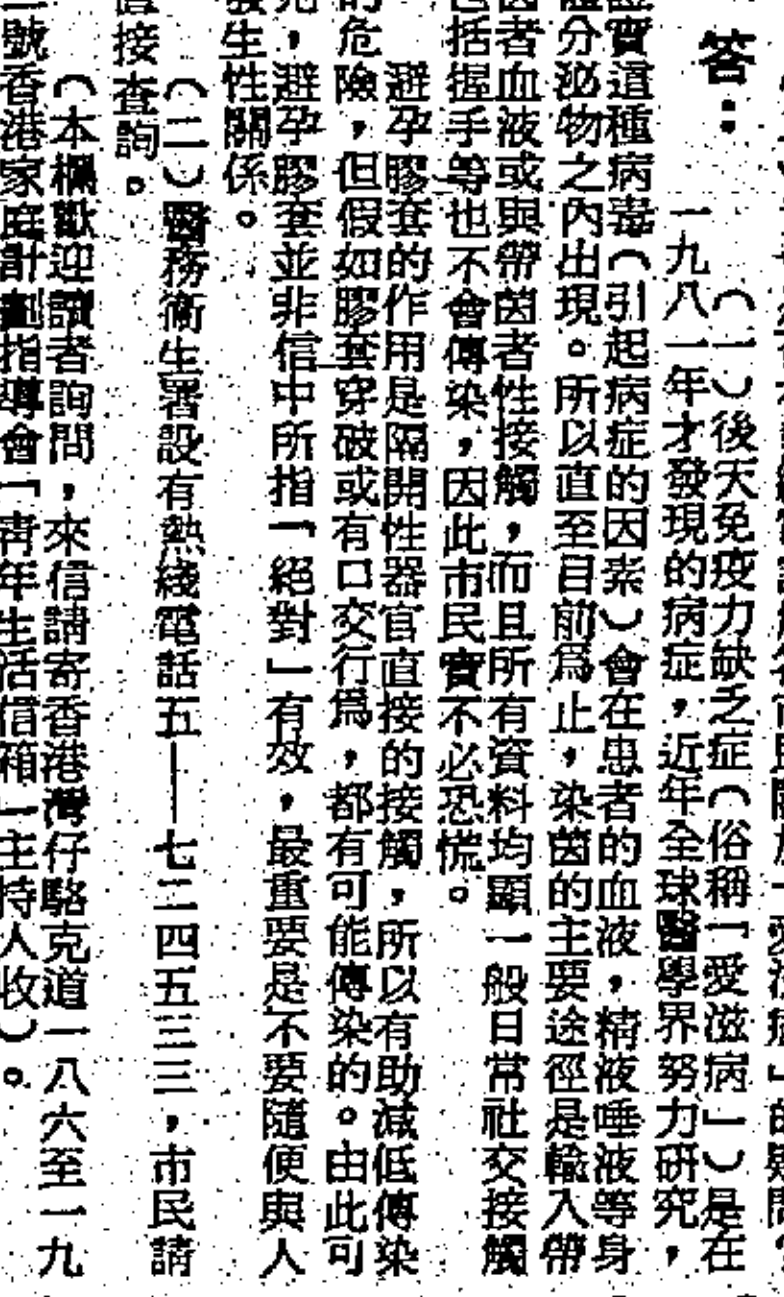 答：
（一）後天免疫力缺乏症（俗稱「愛滋病」）是在
一九八一年才發現的病症，近年全球醫學界努力研究，
證實這種病毒（引起病症的因素）會在患者的血液，精液唾液等身
體分泌物之內出現。所以直至目前爲止，染茵的主要途徑是輸入帶
茵者血液或與帶茵者性接觸，而且所有資料均顯一般日常社交接觸
包括握手等也不會傳染，因此市民實不必恐慌。
避孕膠套的作用是隔開性器官直接的接觸，所以有助減低傳染
的危險，但假如膠套穿破或有口交行爲，都有可能傳染的。由此可
見，避孕膠套並非信中所指「絕對」有效，最重要是不要隨便與人
發生性關係。
（二）醫務衞生署設有熱綫電話五——七二四五三三，市民請
直接查詢。
（本欄歡迎讀者詢問，來信請寄香港灣仔駱克道一八六至一九
二號香港家庭計劃指導會「靑年生活信箱」主持人收）。